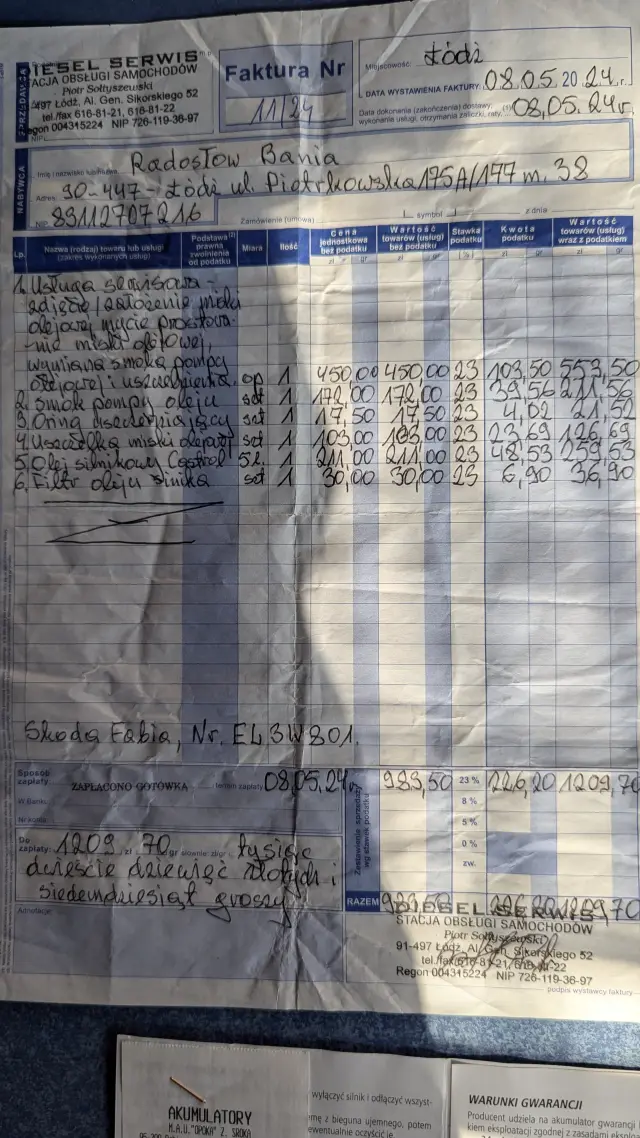 DIESEL SERWIS
STACJA OBSŁUGI SAMOCHODÓW
Piotr Sołtyszewski
91-497 Łódź, Al. Gen. Sikorskiego 52
tel./fax 616-81-21, 616-81-22
Regon 004315224 NIP 726-119-36-97
SPRZEDAWCA
NIP
Faktura Nr
11/24
Miejscowość: Łódź
DATA WYSTAWIENIA FAKTURY: 08.05.2024r.
Data dokonania (zakończenia) dostawy,
wykonania usługi, otrzymania zaliczki, raty: 08,05.24r
NABYWCA
Imię i nazwisko lub nazwa Radosłow Bania
Adres: 90-447-Łódź ul. Piotrkowska 175A/177 m. 38
NIP 83112707216
Zamówienie (umowa) symbol z dnia
Lp. Nazwa (rodzaj) towaru lub usługi (zakres wykonanych usług) Podstawa prawna zwolnienia od podatku Miara Ilość Cena jednostkowa bez podatku Wartość towarów (usług) bez podatku Stawka podatku Kwota podatku Wartość towarów (usług) wraz z podatkiem
zł gr zł gr (%) zł gr zł gr
1. Usługa serwisowa -
zdjęcie/założenie miski
olejowej mycie prostowa-
nie miski olejowej,
wymiana smoka pompy
olejowej i uszczelnienia op 1 450,00 450,00 23 103,50 553,50
2. Smok pompy oleju szt 1 172,00 172,00 23 39,56 211,56
3. Oring uszczelniający szt 1 17,50 17,50 23 4,02 21,52
4. Uszczelka miski olejowej szt 1 103,00 103,00 23 23,69 126,69
5. Olej silnikowy Castrol 5l. 1 211,00 211,00 23 48,53 259,53
6. Filtr oleju silnika szt 1 30,00 30,00 23 6,90 36,90
Skoda Fabia, Nr. EL3W801.
Sposób zapłaty: ZAPŁACONO GOTÓWKA termin zapłaty 08,05,24r.
W Banku
Nr konta
Zestawienie sprzedaży wg stawek podatku
983,50 23 % 226,20 1209,70
8 %
5 %
0 %
zw.
Do zapłaty: 1209 zł 70 gr słownie: tysiąc
dwieście dziewięć złotych i
siedemdziesiąt groszy
Adnotacje
RAZEM 983,50 226,20 1209,70
DIESEL SERWIS
STACJA OBSŁUGI SAMOCHODÓW
Piotr Sołtyszewski
91-497 Łódź, Al. Gen. Sikorskiego 52
tel./fax 616-81-21, 616-81-22
Regon 004315224 NIP 726-119-36-97
podpis wystawcy faktury
AKUMULATORY
M.A.U."OPOKA" Z. SROKA
wyłączyć silnik i odłączyć wszyst-
z bieguna ujemnego, potem
ewentualnie oczyścić je
WARUNKI GWARANCJI
Producent udziela na akumulator gwarancji
kiem eksploatacji zgodnej z zasadami